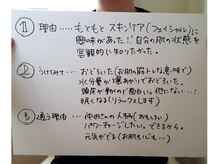 ① 理由……もともとスキンケア(フェイシャル)に
興味があった!!自分の肌の状態を
客観的に知りたかった。
② うけてみて…おどろいた(お肌の筋トレな意味で)
水分量が あがりおどろいた。
頭皮が動くので面白い。他にない…!
明るくなる(リラックスします)
③ 通う理由…仲田さんの人柄(おもしろい)
パワーチャージしたい。できるから。
元気がでる(お肌も心も…)